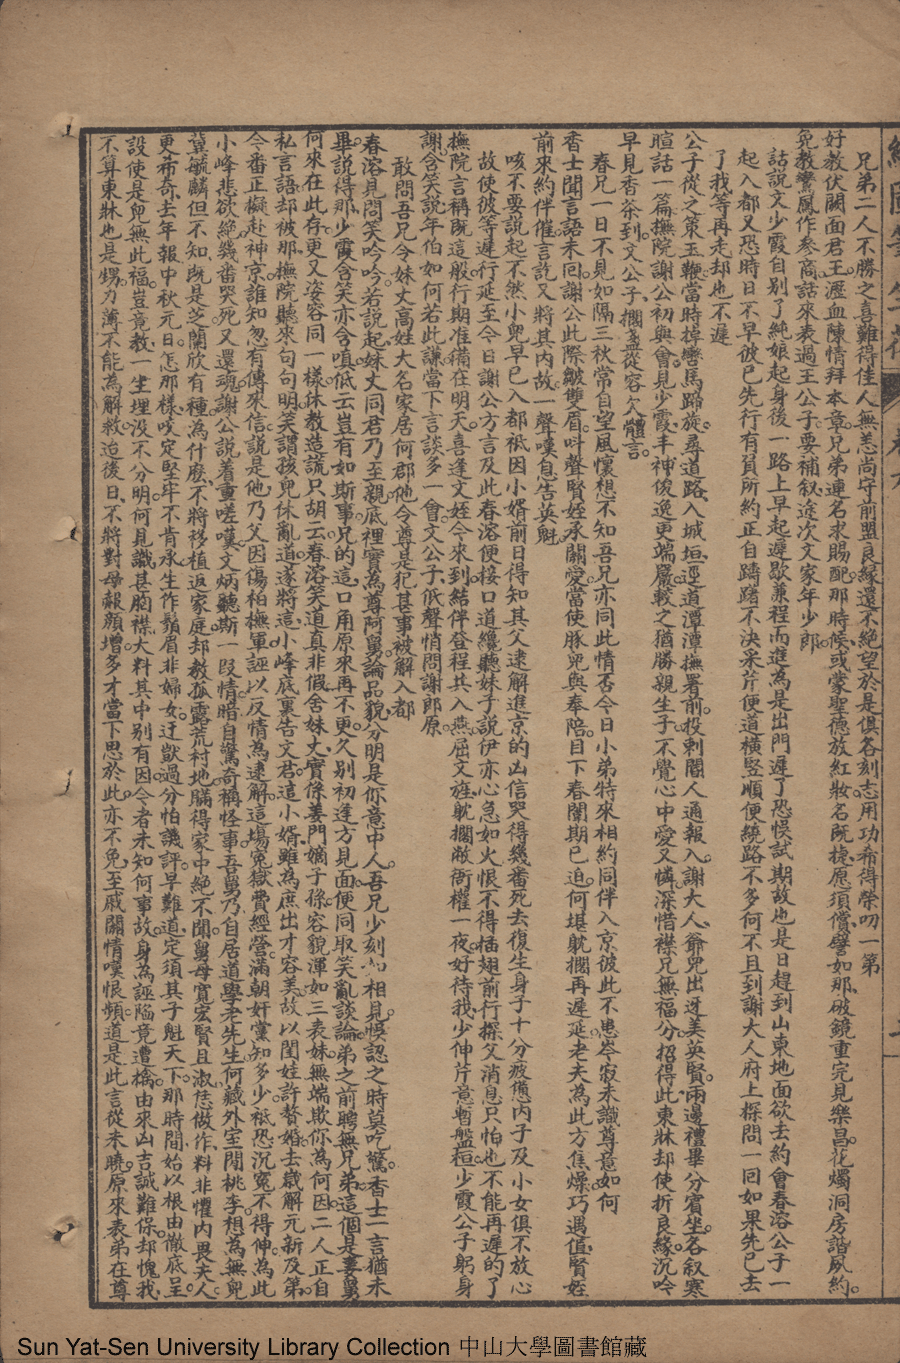 繪圖筆生花 卷六
兄弟二人不勝之喜難得佳人無恙尚守前盟良緣還不絕望於是俱各刻志用功希得榮叨一第
好教伏闕面君王瀝血陳情拜本章兄弟連名求賜配那時候或蒙聖德放紅妝名旣捷愿須償譬如那破鏡重完見樂昌花燭洞房諧夙約
免教鸞鳳作參商話來表過王公子要補叙途次文家年少郎
話說文少霞自別了純娘起身後一路上早起遲歇兼程而進為是出門遲了恐悞試期故也是日趕到山東地面欲去約會春溶公子一
起入都又恐時日不早彼已先行有負所約正自躊躇不決采芹便道橫竪順便繞路不多何不且到謝大人府上探問一回如果先已去
了我等再走却也不遲
公子從之策玉鞭當時掉轡馬蹄旋尋道路入城垣逕道潭潭撫署前投剌閽人通報入謝大人爺兜出迓美英賢兩邊禮畢分賓坐各叙寒
暄話一篇撫院謝公初與會見少霞丰神俊逸更端嚴較之猶勝親生子不覺心中愛又憐深惜襟兄無福分招得此東牀却使折良緣沉吟
早見香茶到文公子擱盞從容欠體言
春兄一日不見如隔三秋常自望風懷想不知吾兄亦同此情否今日小弟特來相約同伴入京彼此不患岑寂未識尊意如何
香士聞言語未回謝公此際皺雙眉呌聲賢姪承關愛當使豚兒與奉陪目下春闈期已迫何堪躭擱再遲延老夫為此方焦燥巧遇值賢姪
前來約伴催言說又將其内故一聲嘆息告英魁
咳不要說起不然小兜早已入都祗因小婿前日得知其父逮解進京的凶信哭得幾番死去復生身子十分疲憊内子及小女俱不放心
故使彼等遲行延至今日謝公方言及此春溶便接口道纔聽妹子說伊亦心急如火恨不得插翅前行探父消息只怕也不能再遲的了
撫院言稱旣這般行期准備在明天喜逢文姪今來到結伴登程共入燕屈文旌躭擱敝衙權一夜好待我少伸芹意暫盤桓少霞公子躬身
謝含笑說年伯如何若此謙當下言談多一會文公子低聲悄問謝郎原
敢問吾兄令妹丈高姓大名家居何郡他令尊是犯甚事被解入都
春溶見問笑吟吟若說起妹丈同君乃至親底裡實為尊阿舅論品貌分明是你意中人吾兄少刻如相見悞認之時莫吃驚香士一言猶未
畢說得那少霞含笑亦含嗔低云豈有如斯事兄的這口角原來再不更久別初逢方見面便同取笑亂談論弟之前聘無兄弟這個是妻舅
何來在此存更又姿容同一樣休教造謊只胡云春溶笑道真非假舍妹丈實係姜門嫡子孫容貌渾如三表妹無端欺你為何因二人正自
私言語却被那撫院聽來句句明笑謂孩兒休亂道遂將這小峰底裏告文君這小婿雖為庶出才容美故以閨娃許贅婚去歲解元新及第
今番正擬赴神京誰知忽有傳來信說是他乃父因傷柏撫軍誣以反情為逮解這場寃獄費經營滿朝奸黨知多少祗恐沉寃不得伸為此
小峰悲欲絕幾番哭死又還魂謝公說着重嗟嘆文炳聽斯一段情暗自驚奇稱怪事吾舅乃自居道學老先生何藏外室閒桃李想為無兒
冀毓麟但不知旣是芝蘭欣有種為什麽不將移植返家庭却教孤露荒村地瞞得家中絕不聞舅母寬宏賢且淑恁做作料非懼内畏夫人
更希奇去年報中秋元日怎那樣咬定堅牢不肯承生作鬚眉非婦女迂猷過分怕譏評早難道定須其子魁天下那時間始以根由徹底呈
設使是兒無此福豈竟教一坐埋没不分明何見識甚胸襟大料其中別有因今者未知何事故身為誣陷竟遭擒由來凶吉誠難保却愧我
不算東牀也是甥力薄不能為解救迨後日不將對母報顏增多才當下思於此亦不免至戚關情嘆恨頻道是此言從未曉原來表弟在尊
Sun Yat-Sen University Library Collection 中山大學圖書館藏